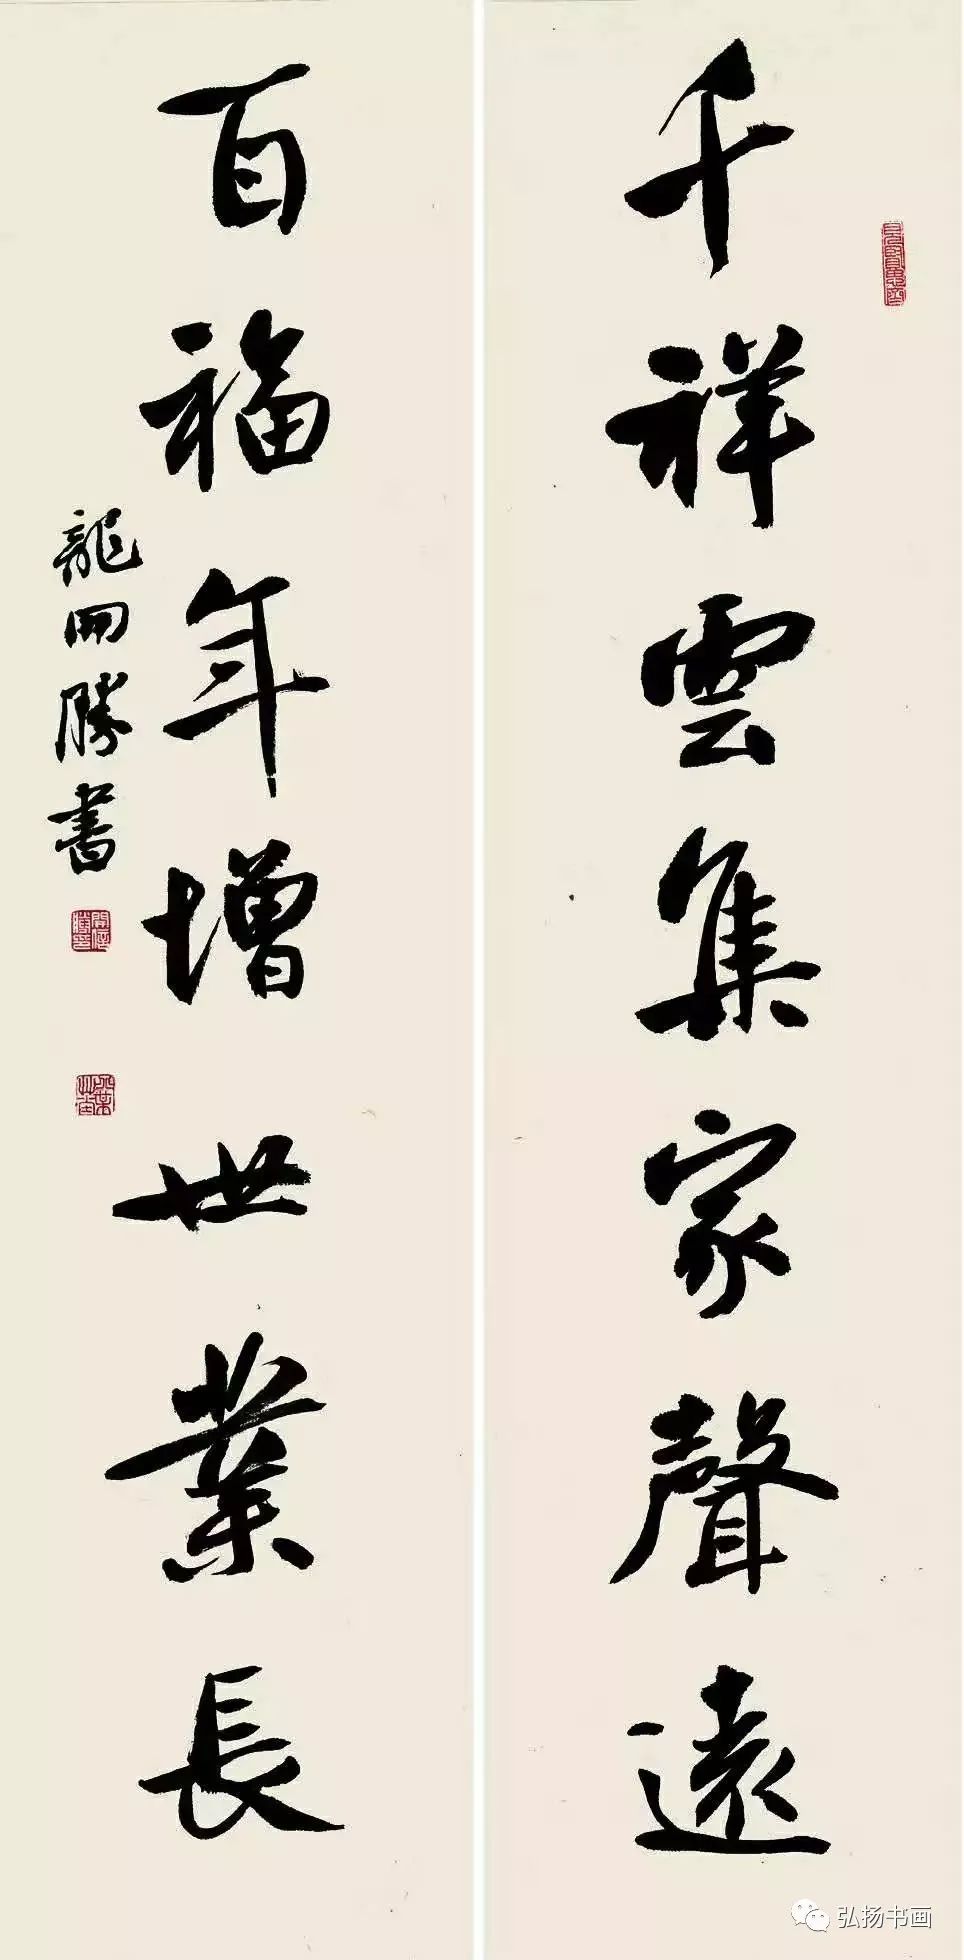 千祥雲集家聲遠
百福年增世業長
龍開勝書
弘扬书画